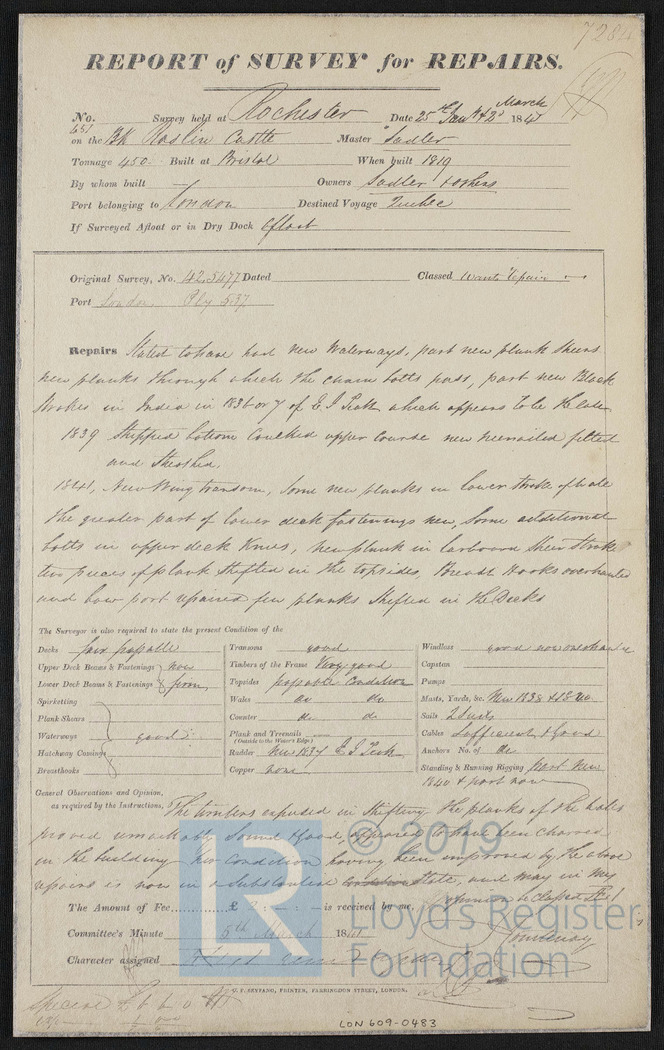 7284
REPORT of SURVEY for REPAIRS.
No. 451 Survey held at Rochester Date 25th Jany & 2d March 1841
on the Bk Roslin Castle Master Sadler
Tonnage 450. Built at Bristol When built 1819
By whom built Owners Sadler & others
Port belonging to London Destined Voyage Quebec
If Surveyed Afloat or in Dry Dock Afloat
Original Survey, No. 42,5477 Dated Classed Wants repair
Port London
Repairs Stated to have had New Waterways, part new plank sheers
new planks through which the chain bolts pass, part new Black
Strokes in India in 1836 or 7 of E I Teak which appears to be the case
1839 Stripped bottom Caulked upper course new treenailed felted
and Sheathed.
1841, New Wing transom, Some new planks in lower stroke of wale
the greater part of lower deck fastenings new, Some additional
bolts in upper deck Knees, New plank in larboard Sheer Stroke
two pieces of plank Shifted in the topsides, Breast Hooks overhauled
and bow port repaired few planks Shifted in the Decks
The Surveyor is also required to state the present Condition of the
Decks fair passable
Upper Deck Beams & Fastenings now
Lower Deck Beams & Fastenings firm
Spirketting
Plank Shears
Waterways good
Hatchway Comings
Breasthooks
Transoms good
Timbers of the Frame Very good
Topsides passable Condition
Wales do do
Counter do do
Plank and Treenails
(Outside to the Water's Edge)
Rudder New 1837 E I Teak
Copper none
Windlass good now overhauled
Capstan
Pumps
Masts, Yards, &c. New 1838 & 1840
Sails 2 Suits
Cables Sufficient & Good
Anchors No. of do
Standing & Running Rigging part New
1840 & part now
General Observations and Opinion,
as required by the Instructions,
The timbers exposed in Shifting the planks of the wales
proved remarkably Sound & Good, appeared to have been charred
in the building Her Condition having been improved by the above
repairs is now in a Substantial State, and may in my
opinion be Classed Æ 1
The Amount of Fee £ 2 is received by me,
Committee's Minute 5th March 1841
Character assigned
C. F. SEYFANG, PRINTER, FARRINGDON STREET, LONDON.
LON 609-0483
© 2019
LR
Lloyd's Register
Foundation